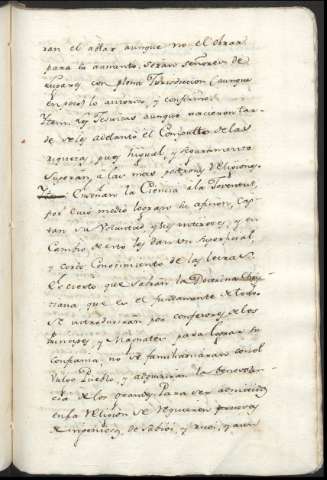 ran el adar aunque no el obrar
para su aumento. Seran señores de
lugares con plena Jurisdiccion (aunque
en pocos lo
Item. los Jesuitas aunque nacieron tar-
de se les adelantó el Conjunto de las
riquezas, pues igual, y seguramente
Superan, a las mas Religiones.
Enseñan la Ciencia a la Juventud,
por cuio medio logran su aficion, cap-
tan su Voluntad y y en
Cambio de esto les dan un Superficial,
y corto Conocimiento de las letras.
Es cierto que señan la Doctrina Chris-
tiana que es el fundamento de todo.
Se introducirán por confesores de los
Principes, y Magnates para lograr su
confianza, no se familiarizaran con el
Vulgo Pueblo, y adquirirán la benevolen-
cia de los grandes. Para ser admitidos
en la Religion se requieren pruevas
de ingenios, de sabios, y y aun